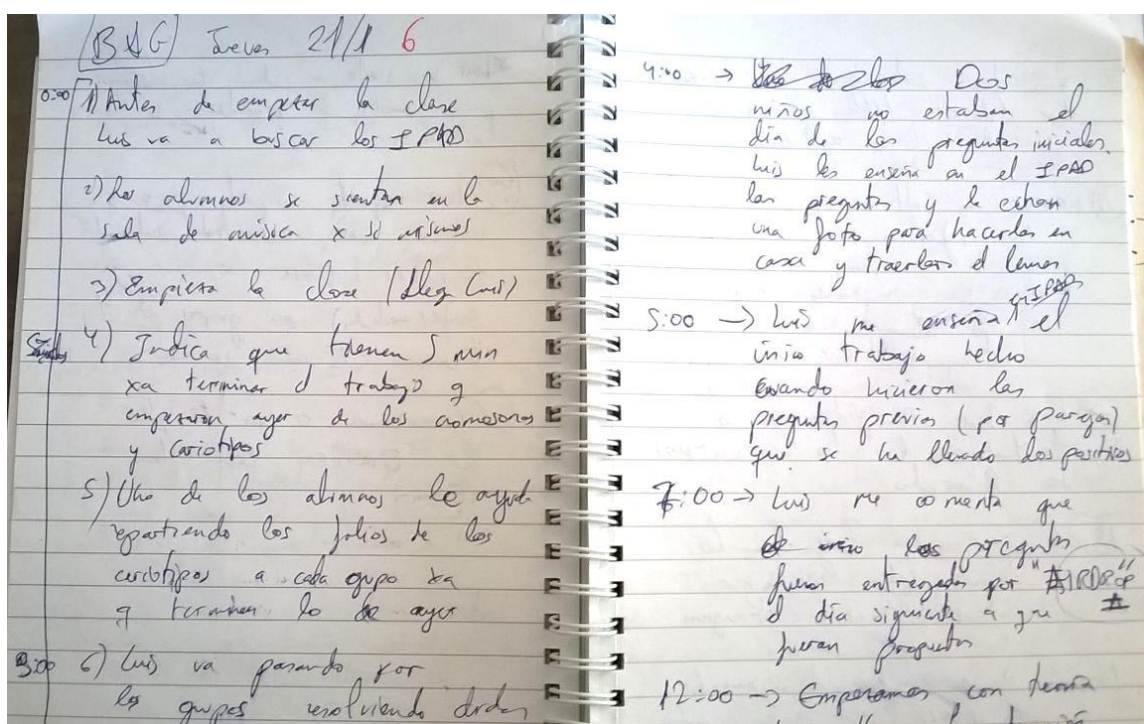 B y G Jueves 21/1 6
0:00 1) Antes de empezar la clase
Luis va a buscar los IPAD
2) Los alumnos se sientan en la
sala de música x sí mismos
3) Empieza la clase (Llega Luis)
4) Indica que tienen 5 min
xa terminar el trabajo q
empezaron ayer de los cromosomas
y cariotipos
5) Uno de los alumnos le ayuda
repartiendo los folios de los
cariotipos a cada grupo xa
q terminen lo de ayer
3:00 6) Luis va pasando por
los grupos resolviendo dudas
4:00 → Dos
niños no estaban el
día de las preguntas iniciales.
Luis les enseña en el IPAD
las preguntas y le echan
una foto para hacerlas en
casa y traerlas el lunes
5:00 → Luis me enseña en IPAD el
único trabajo hecho
cuando hicieron las
preguntas previas (por parejas)
que se ha llevado dos positivos
7:00 → Luis me comenta que
las preguntas
fueron entregadas por "AIRDROP"
el día siguiente a que
fueran propuestas
12:00 → Empezamos con teoría